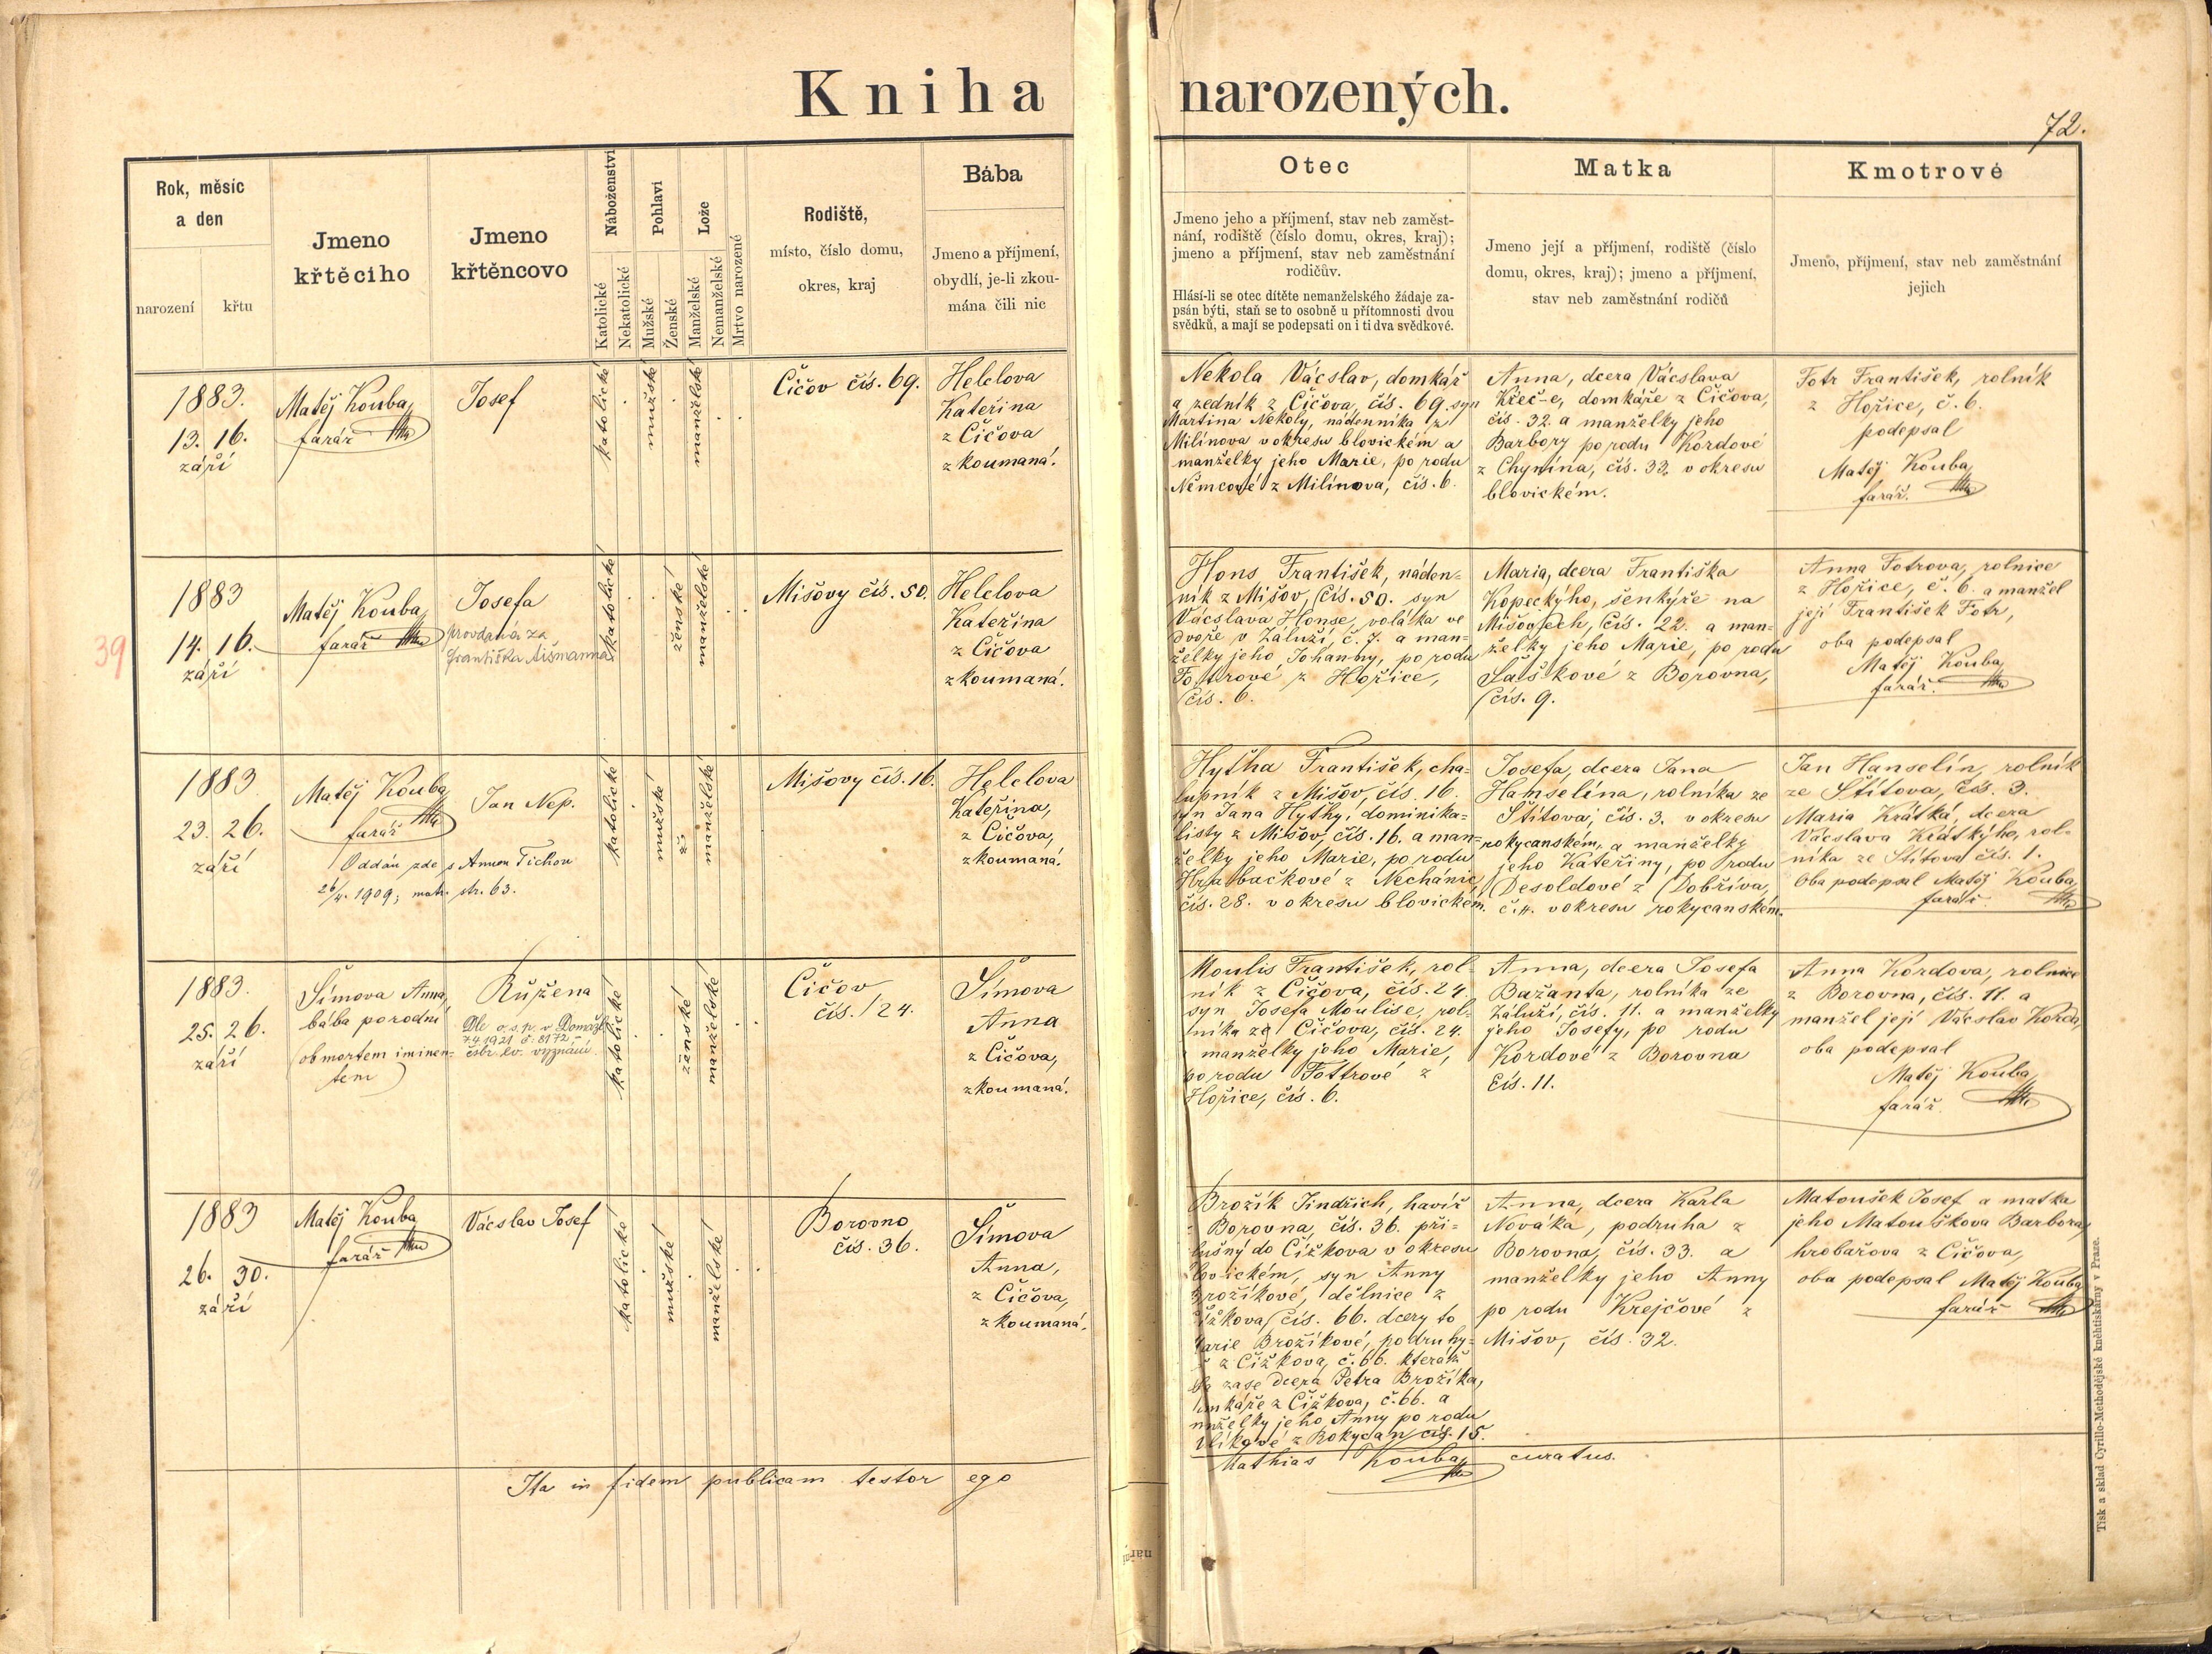 Kniha narozených.
72.
Rok, měsíc
a den
narození
křtu
Jmeno
křtěcího
Jmeno
křtěncovo
Náboženství
Katolické
Nekatolické
Pohlaví
Mužské
Ženské
Lože
Manželské
Nemanželské
Mrtvo narozené
Rodiště,
místo, číslo domu,
okres, kraj
Bába
Jmeno a příjmení,
obydlí, je-li zkou-
mána čili nic
Otec
Jmeno jeho a příjmení, stav neb zaměst-
nání, rodiště (číslo domu, okres, kraj);
jmeno a příjmení, stav neb zaměstnání
rodičův.
Hlásí-li se otec dítěte nemanželského žádaje za-
psán býti, staň se to osobně u přítomnosti dvou
svědků, a mají se podepsati on i ti dva svědkové.
Matka
Jmeno její a příjmení, rodiště (číslo
domu, okres, kraj); jmeno a příjmení,
stav neb zaměstnání rodičů
Kmotrové
Jmeno, příjmení, stav neb zaměstnání
jejich
1883.
13. 16.
září
Matěj Kouba,
farář
Josef
katolické
mužské
manželské
Čičov čís. 69.
Helclova
Kateřina
z Čičova
zkoumaná.
Nekola Vácslav, domkář
a zedník z Čičova, čís. 69. syn
Martina Nekoly, nádenníka z
Milínova v okresu blovickém a
manželky jeho Marie, po rodu
Němcové z Milínova, čís. 6.
Anna, dcera Vácslava
Křeč-e, domkáře z Čičova,
čís. 32. a manželky jeho
Barbory po rodu Kordové
z Chynína, čís. 33. v okresu
blovickém.
Fotr František, rolník
z Hořice, č. 6.
podepsal
Matěj Kouba,
farář.
39
1883
14. 16.
září
Matěj Kouba,
farář
Josefa
provdaná za
Františka Aišmanna
katolické
ženské
manželské
Mišovy čís. 50.
Helclova
Kateřina
z Čičova
zkoumaná.
Hons František, náden-
ník z Mišov, čís. 50. syn
Vácslava Honse, voláka ve
dvoře v Záluží, č. 7. a man-
želky jeho Johanny, po rodu
Fotrové z Hořice,
čís. 6.
Maria, dcera Františka
Kopeckýho, šenkýře na
Mišovjech, čís. 22. a man-
želky jeho Marie, po rodu
Šaškové z Borovna,
čís. 9.
Anna Fotrova, rolnice
z Hořice, č. 6. a manžel
její František Fotr,
oba podepsal
Matěj Kouba,
farář.
1883
23. 26.
září
Matěj Kouba
farář
Jan Nep.
Oddán zde s Annou Tichou
1909; matr. str. 63.
katolické
mužské
manželské
Mišovy čís. 16.
Helclova
Kateřina,
z Čičova,
zkoumaná.
Hytha František, cha-
lupník z Mišov, čís. 16.
syn Jana Hythy, dominika-
listy z Mišov, čís. 16. a man-
želky jeho Marie, po rodu
Hrabačkové z Nechánic,
čís. 28. v okresu blovickém.
Josefa, dcera Jana
Hanselína, rolníka ze
Štítova, čís. 3. v okresu
rokycanském, a manželky
jeho Kateřiny, po rodu
Desoldové z Dobříva,
č. 4. v okresu rokycanském.
Jan Hanselín, rolník
ze Štítova, čís. 3.
Maria Krátká, dcera
Vácslava Krátkýho, rol-
níka ze Štítova čís. 1.
Oba podepsal Matěj Kouba,
farář.
1883.
25. 26.
září
Šimova Anna,
bába porodní
(ob mortem iminen-
tem)
Růžena
Dle o.s.p. v Domažl.
7.4 1921 č: 8172-
čsbr. ev. vyznání.
katolické
ženské
manželské
Čičov
čís. 24.
Šimova
Anna
z Čičova,
zkoumaná.
Moulis František, rol-
ník z Čičova, čís. 24.
syn Josefa Moulise, rol-
níka ze Čičova, čís. 24.
manželky jeho Marie,
po rodu Fottrové z
Hořice, čís. 6.
Anna, dcera Josefa
Bažanta, rolníka ze
Záluží, čís. 11. a manželky
jeho Josefy, po rodu
Kordové z Borovna
čís. 11.
Anna Kordova, rolnice
z Borovna, čís. 11. a
manžel její Vácslav Korda,
oba podepsal
Matěj Kouba,
farář.
1883
26. 30.
září
Matěj Kouba,
farář
Vácslav Josef
katolické
mužské
manželské
Borovno
čís. 36.
Šimova
Anna,
z Čičova,
zkoumaná.
Brožík Jindřich, havíř
z Borovna, čís. 36. pří-
lušný do Čížkova v okresu
blovickém, syn Anny
Brožíkové, dělnice z
Čížkova, čís. 66. dcery to
Marie Brožíkové, podruhy-
z Čížkova, č. 66. kteráž
zase dcera Petra Brožíka,
domkáře z Čížkova, č. 66. a
manželky jeho Anny po rodu
Vlkové z Rokycan čís. 15.
Anna, dcera Karla
Nováka, podruha z
Borovna, čís. 33. a
manželky jeho Anny
po rodu Krejčové z
Mišov, čís. 32.
Matoušek Josef a matka
jeho Matouškova Barbora,
hrobařova z Čičova,
oba podepsal Matěj Kouba,
farář
Ita in fidem publicam testor ego Mathias Kouba, curatus.
Tisk a sklad Cyrillo-Methodějské knihtiskárny v Praze.